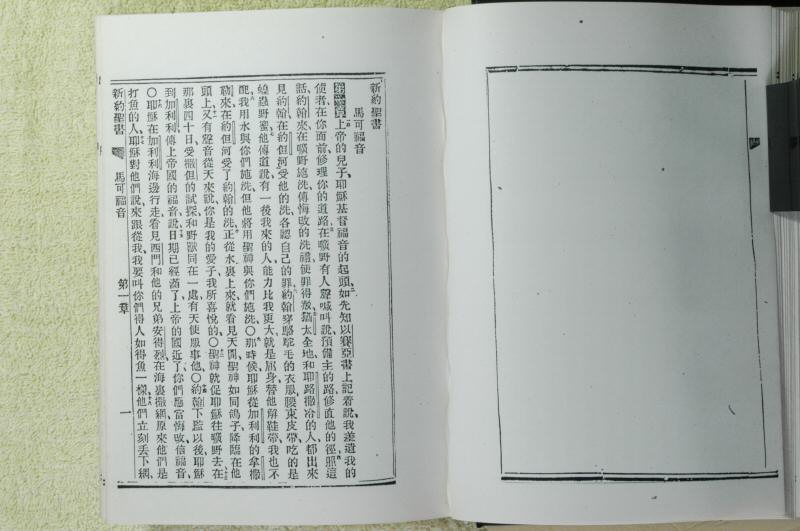 新約聖書
馬可福音
第一章上帝的兒子耶穌基督福音的起頭如先知以賽亞書上記着說我差遣我的
使者在你面前修理你的道路在曠野有人聲喊叫說預備主的路修直他的徑照這
話約翰來在曠野施洗傳悔改的洗禮使罪得赦猶太全地和耶路撒冷的人都出來
見約翰在約但河受他的洗各認自己的罪約翰穿駱駝毛的衣服腰束皮帶吃的是
蝗蟲野蜜他傳道說有一後我來的人能力比我更大就是屈身替他解鞋帶我也不
配我用水與你們施洗但他將用聖神與你們施洗〇那時候耶穌從加利利的拿撒
勒來在約但河受了約翰的洗正從水裏上來就看見天開聖神如同鴿子降臨在他
頭上又有聲音從天來說你是我的愛子我所喜悅的〇聖神就促耶穌往曠野去在
那裏四十日受撒但的試探和野獸同在一處有天使服事他〇約翰下監以後耶穌
到加利利傳上帝國的福音說日期已經滿了上帝的國近了你們應當悔改信福音
〇耶穌在加利利海邊行走看見西門和他的兄弟安得烈在海裏撒網原來他們是
打魚的人耶穌對他們說來跟從我我要叫你們得人如得魚一樣他們立刻丟下網
新約聖書 馬可福音 第一章 一